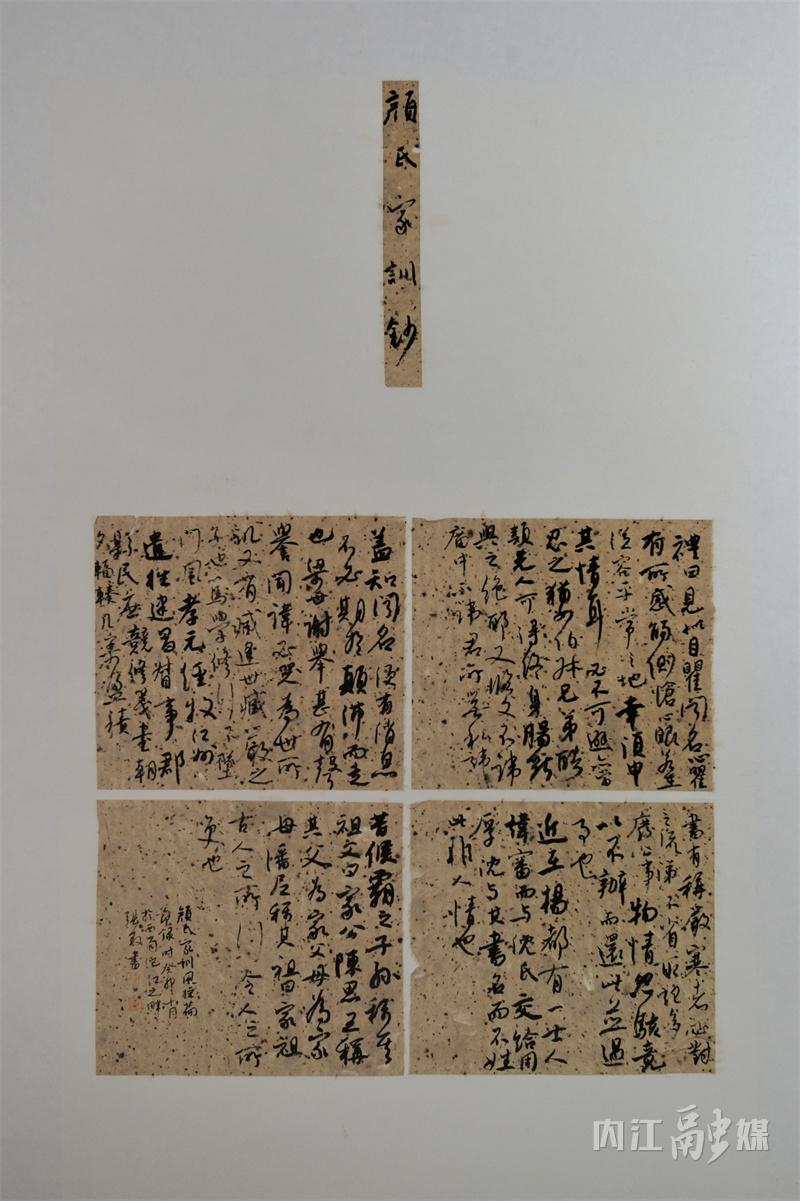 顏氏家訓鈔
禮曰見似目瞿聞名心瞿
有所感觸惻愴心眼若在
從容平常之地幸須申
其情耳必不可避當
忍之猶如伯叔兄弟酷
類先人可得終身腸斷
與之絕耶又臨文不諱
廟中不諱君所無私諱
蓋知聞名須有消息
不必期於顛沛而走
也梁世謝舉甚有聲
譽聞諱必哭為世所
譏又有臧逢世臧嚴之
子也篤學修行不墜
門風孝元經牧江州
遣往建昌督事郡
縣民庶競修箋書朝
夕輻輳几案盈積
書有稱嚴寒者必對
之流涕不省取記多
廢公事物情怨駭竟
以不辦而還此並過
事也
近在揚都有一士人
諱審而與沈氏交結周
厚沈與其書名而不姓
此非人情也
昔侯霸之子孫稱其
祖父曰家公陳思王稱
其父為家父母為家
母潘尼稱其祖曰家祖
古人之所行今人之所
笑也
顏氏家訓風操篇
節錄時癸卯
於西蜀沱江之畔
張 書
内江融媒